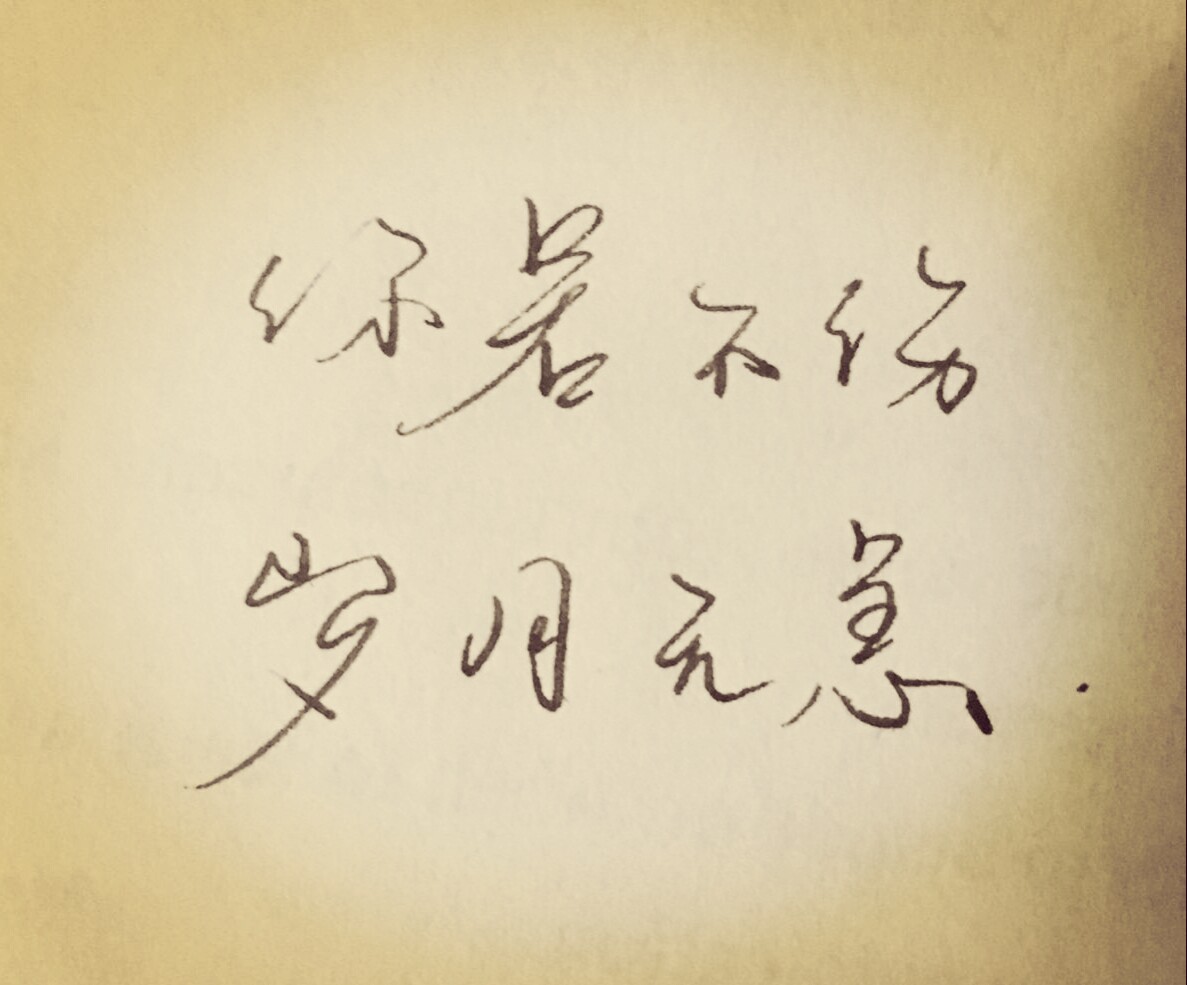 你若不伤
岁月无恙.